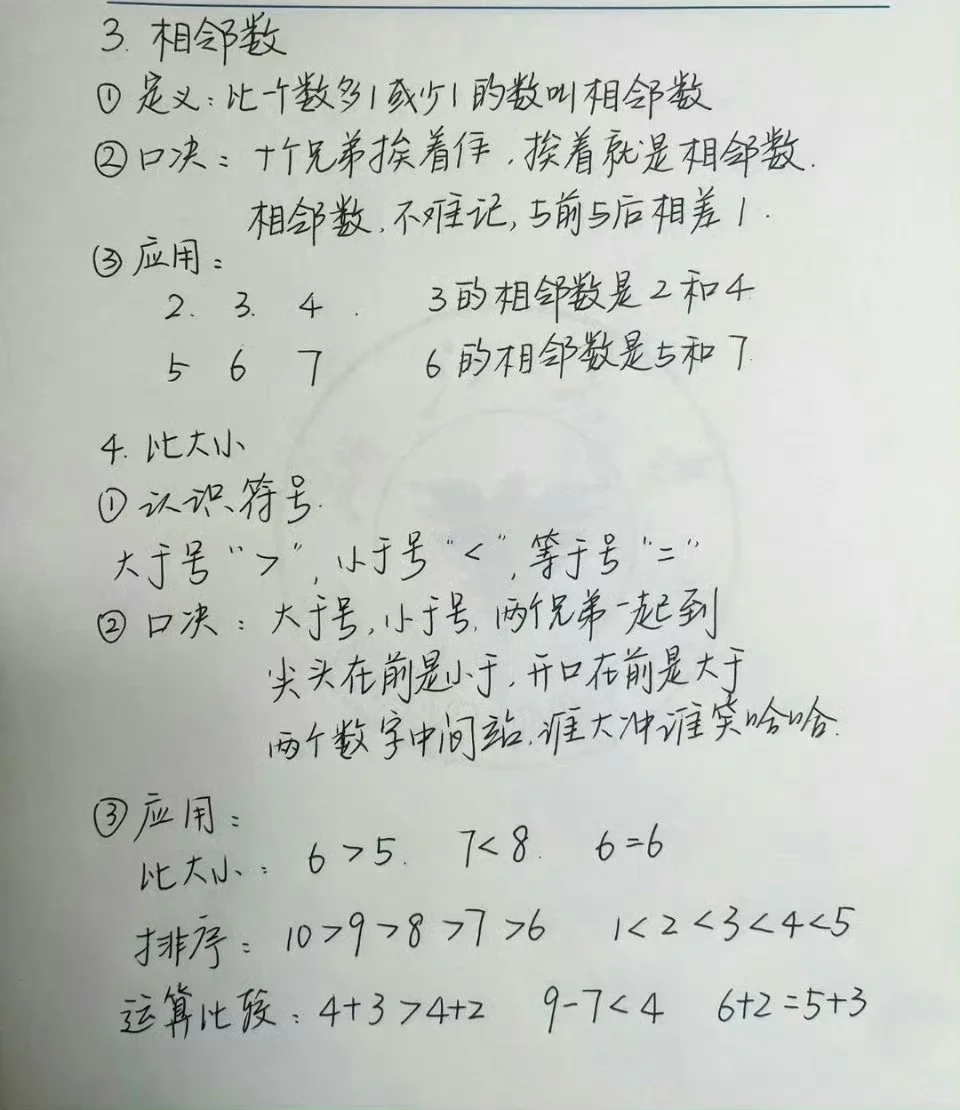 3. 相邻数
① 定义：比一个数多1或少1的数叫相邻数
② 口决：十个兄弟挨着住，挨着就是相邻数.
相邻数，不难记，与前与后相差1.
③ 应用：
2. 3. 4. 3的相邻数是2和4
5 6 7 6的相邻数是5和7
4. 比大小
① 认识符号.
大于号“>”，小于号“<”，等于号“=”
② 口决：大于号，小于号，两个兄弟一起到
尖头在前是小于，开口在前是大于
两个数字中间站，谁大冲谁笑哈哈.
③ 应用：
比大小：6>5. 7<8. 6=6
排序：10>9>8>7>6 1<2<3<4<5
运算比较：4+3>4+2 9-7<4 6+2=5+3